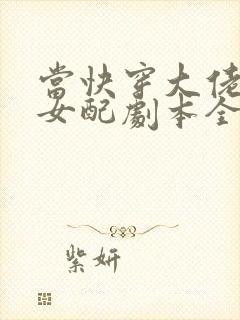 當快穿大佬
女配劇本全
紫妍